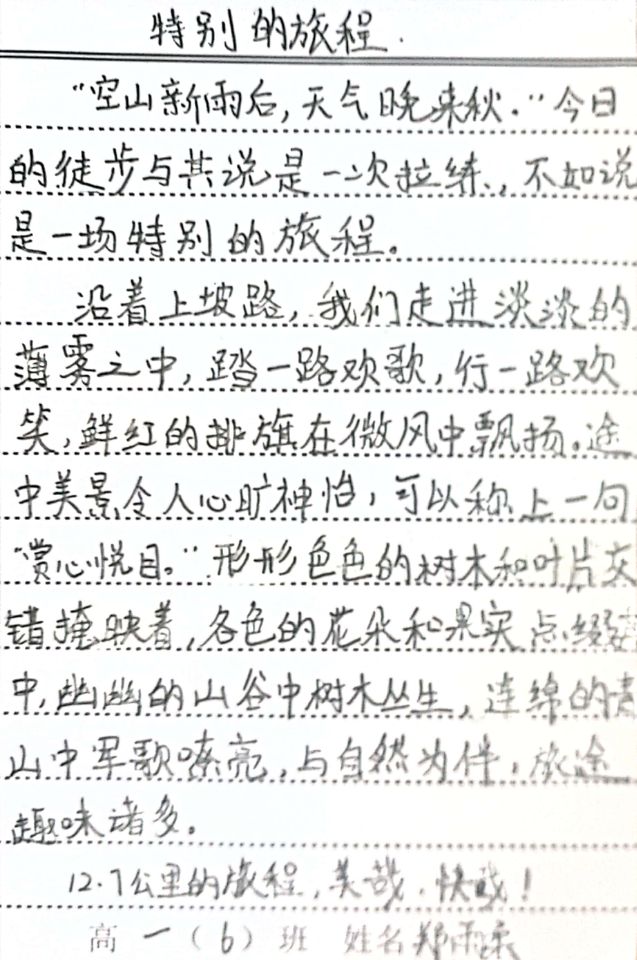 特别的旅程.
“空山新雨后,天气晚来秋.”今日
的徒步与其说是一次拉练,不如说
是一场特别的旅程。
沿着上坡路,我们走进淡淡的
薄雾之中,踏一路欢歌,行一路欢
笑,鲜红的排旗在微风中飘扬。途
中美景令人心旷神怡,可以称上一句
“赏心悦目。”形形色色的树木和叶片交
错掩映着,各色的花朵和果实点缀
中,幽幽的山谷中树木丛生,连绵的青
山中军歌嘹亮,与自然为伴,旅途
趣味诸多。
12.7公里的旅程,美哉,快哉!
高一(6)班 姓名郑雨